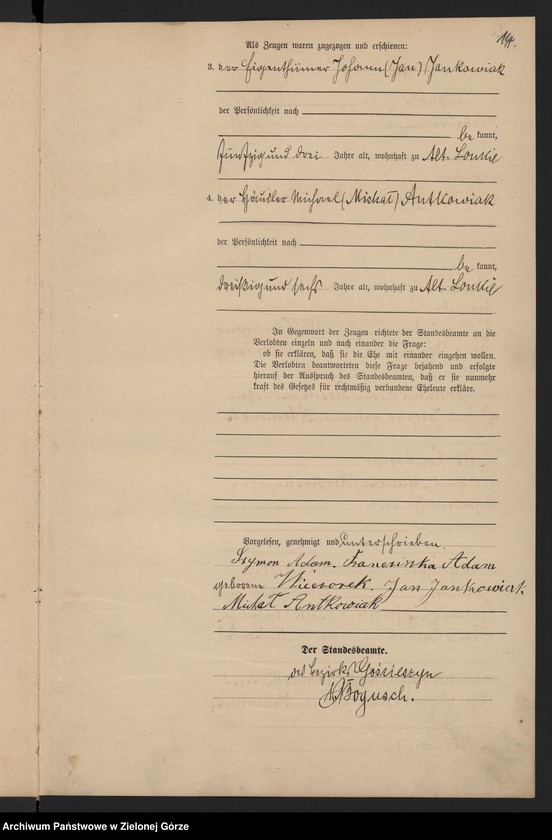 14.
Als Zeugen waren zugezogen und erschienen:
3. der Eigenthümer Johann (Jan) Jankowiak
der Persönlichkeit nach
be kannt,
fünfzig und drei Jahre alt, wohnhaft zu Alt
4. der Häusler Michael (Michał) Antkowiak
der Persönlichkeit nach
be kannt,
dreißig und sechs Jahre alt, wohnhaft zu Alt
In Gegenwart der Zeugen richtete der Standesbeamte an die
Verlobten einzeln und nach einander die Frage:
ob sie erklären, daß sie die Ehe mit einander eingehen wollen.
Die Verlobten beantworteten diese Frage bejahend und erfolgte
hierauf der Ausspruch des Standesbeamten, daß er sie nunmehr
kraft des Gesetzes für rechtmäßig verbundene Eheleute erkläre.
Vorgelesen, genehmigt und unterschrieben.
Szymon Adam. Franciszka Adam
geborene Wieczorek. Jan Jankowiak
Michał Antkowiak
Der Standesbeamte.
des Bezirks Gościeszyn
Bogusch.
Archiwum Państwowe w Zielonej Górze